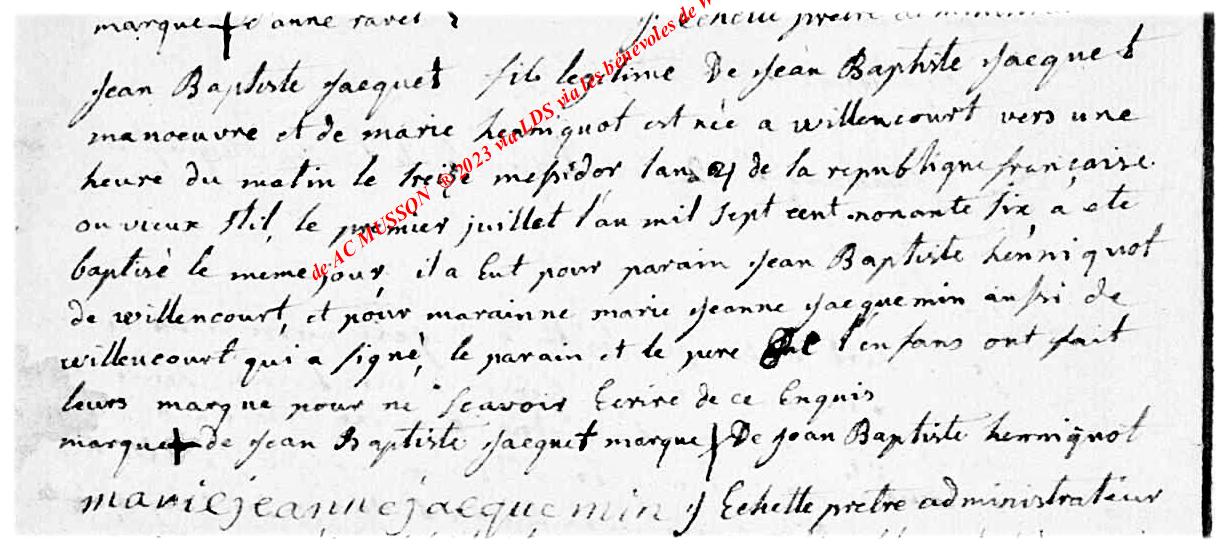 marque + d'anne ravet
j. Echette pretre administrateur
Jean Baptiste Jacquet fils legitime De Jean Baptiste Jacquet
manoeuvre et de marie henniquot est née a willencourt vers une
heure du matin le treize messidor lan 4 de la republique française
ou vieux Stil le premier juillet l'an mil sept cent nonante six a ete
baptisé le meme jour, il a Eut pour parain Jean Baptiste henniquot
de willencourt, et pour marainne marie Jeanne Jacquemin aussi de
willencourt qui a signé, le parain et le pere l'enfans ont fait
leurs marque pour ne scavoir Ecrire de ce Enquis
marque + de Jean Baptiste Jacquet marque De Jean Baptiste henniquot
marie jeanne jacquemin j Echette pretre administrateur
de AC MUSSON ®2023 via LDS via les bénévoles de